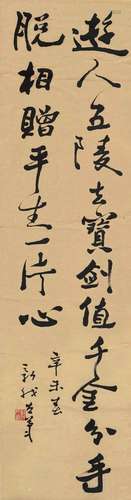 遊人五陵去寶劍值千金分手
脫相贈平生一片心
辛未春